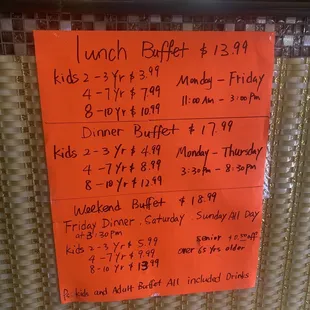 lunch Buffet $ 13.99
kids 2 - 3 yr $ 3.99
4 - 7 yr $ 7.99
8 - 10 yr $ 10.99
Monday - Friday
11:00 Am - 3:00 pm
Dinner Buffet $ 17.99
kids 2 - 3 yr $ 4.99
4 - 7 yr $ 8.99
8 - 10 yr $ 12.99
Monday - Thursday
3:30 pm - 8:30 pm
Weekend Buffet $ 18.99
Friday Dinner . Saturday . Sunday All Day
at 3:30 pm
kids 2 - 3 yr $ 5.99
4 - 7 yr $ 9.99
8 - 10 yr $ 13.99
senior off
over 65 yrs older
kids and Adult Buffet All included Drinks